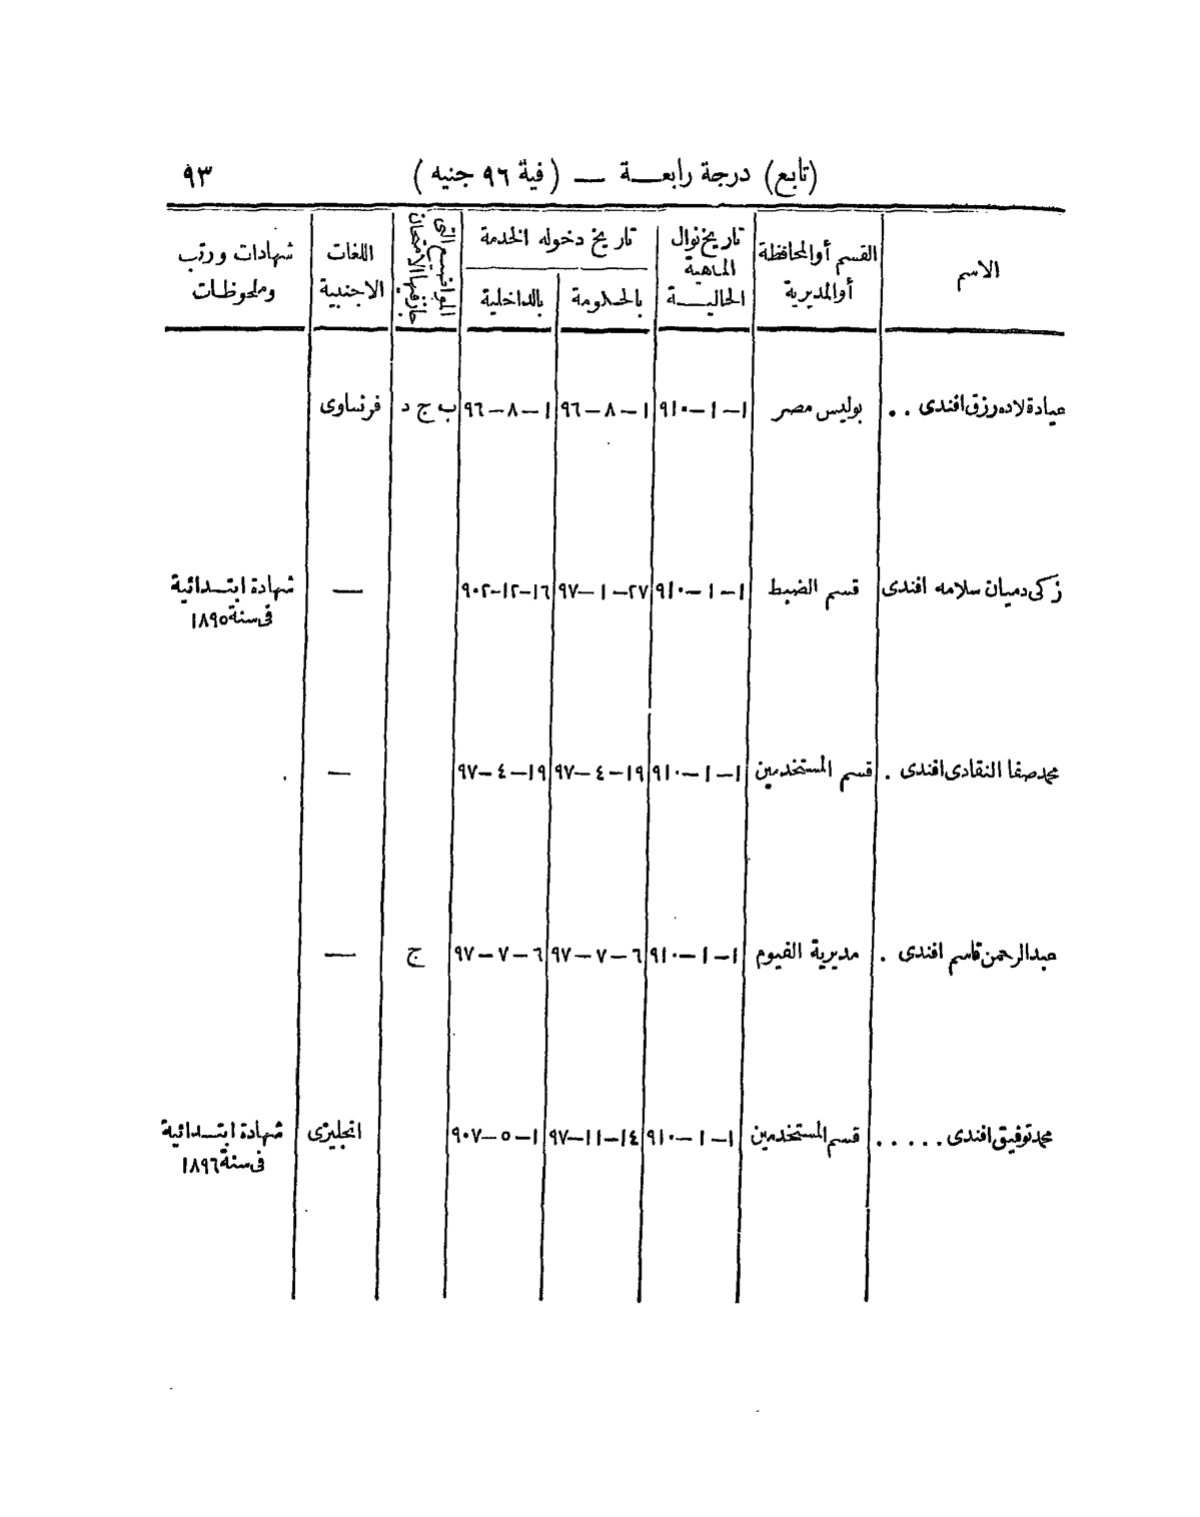 (تابع) درجة رابعـــة — (فية ٩٦ جنيه) ٩٣
الاسم
القسم أو المحافظة
أو المديرية
تاريخ نوال
الماهية
الحاليـــة
تاريخ دخوله الخدمة
بالحكومة
بالداخلية
المواضيع التى
جاز فيها الامتحان
اللغات
الاجنبية
شهادات ورتب
وملحوظات
عيادة لاده رزق افندى . . بوليس مصر ١ – ١ – ٩١٠ ١ – ٨ – ٩٦ ١ – ٨ – ٩٦ ب ج د فرنساوى
زكى دميان سلامه افندى قسم الضبط ١ – ١ – ٩١٠ ٢٧ – ١ – ٩٧ ١٦–١٢–٩٠٢ — شهادة ابتـــدائية
فى سنة ١٨٩٥
محمد صفا النقادى افندى . قسم المستخدمين ١ – ١ – ٩١٠ ١٩ – ٤ – ٩٧ ١٩ – ٤ – ٩٧ —
عبد الرحمن قاسم افندى . مديرية الفيوم ١ – ١ – ٩١٠ ٦ – ٧ – ٩٧ ٦ – ٧ – ٩٧ ج —
محمد توفيق افندى . . . . . قسم المستخدمين ١ – ١ – ٩١٠ ١٤–١١–٩٧ ١ – ٥ – ٩٠٧ انجليزى شهادة ابتـــدائية
فى سنة ١٨٩٦